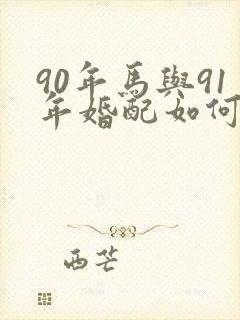 90年馬與91
年婚配如何
西芒